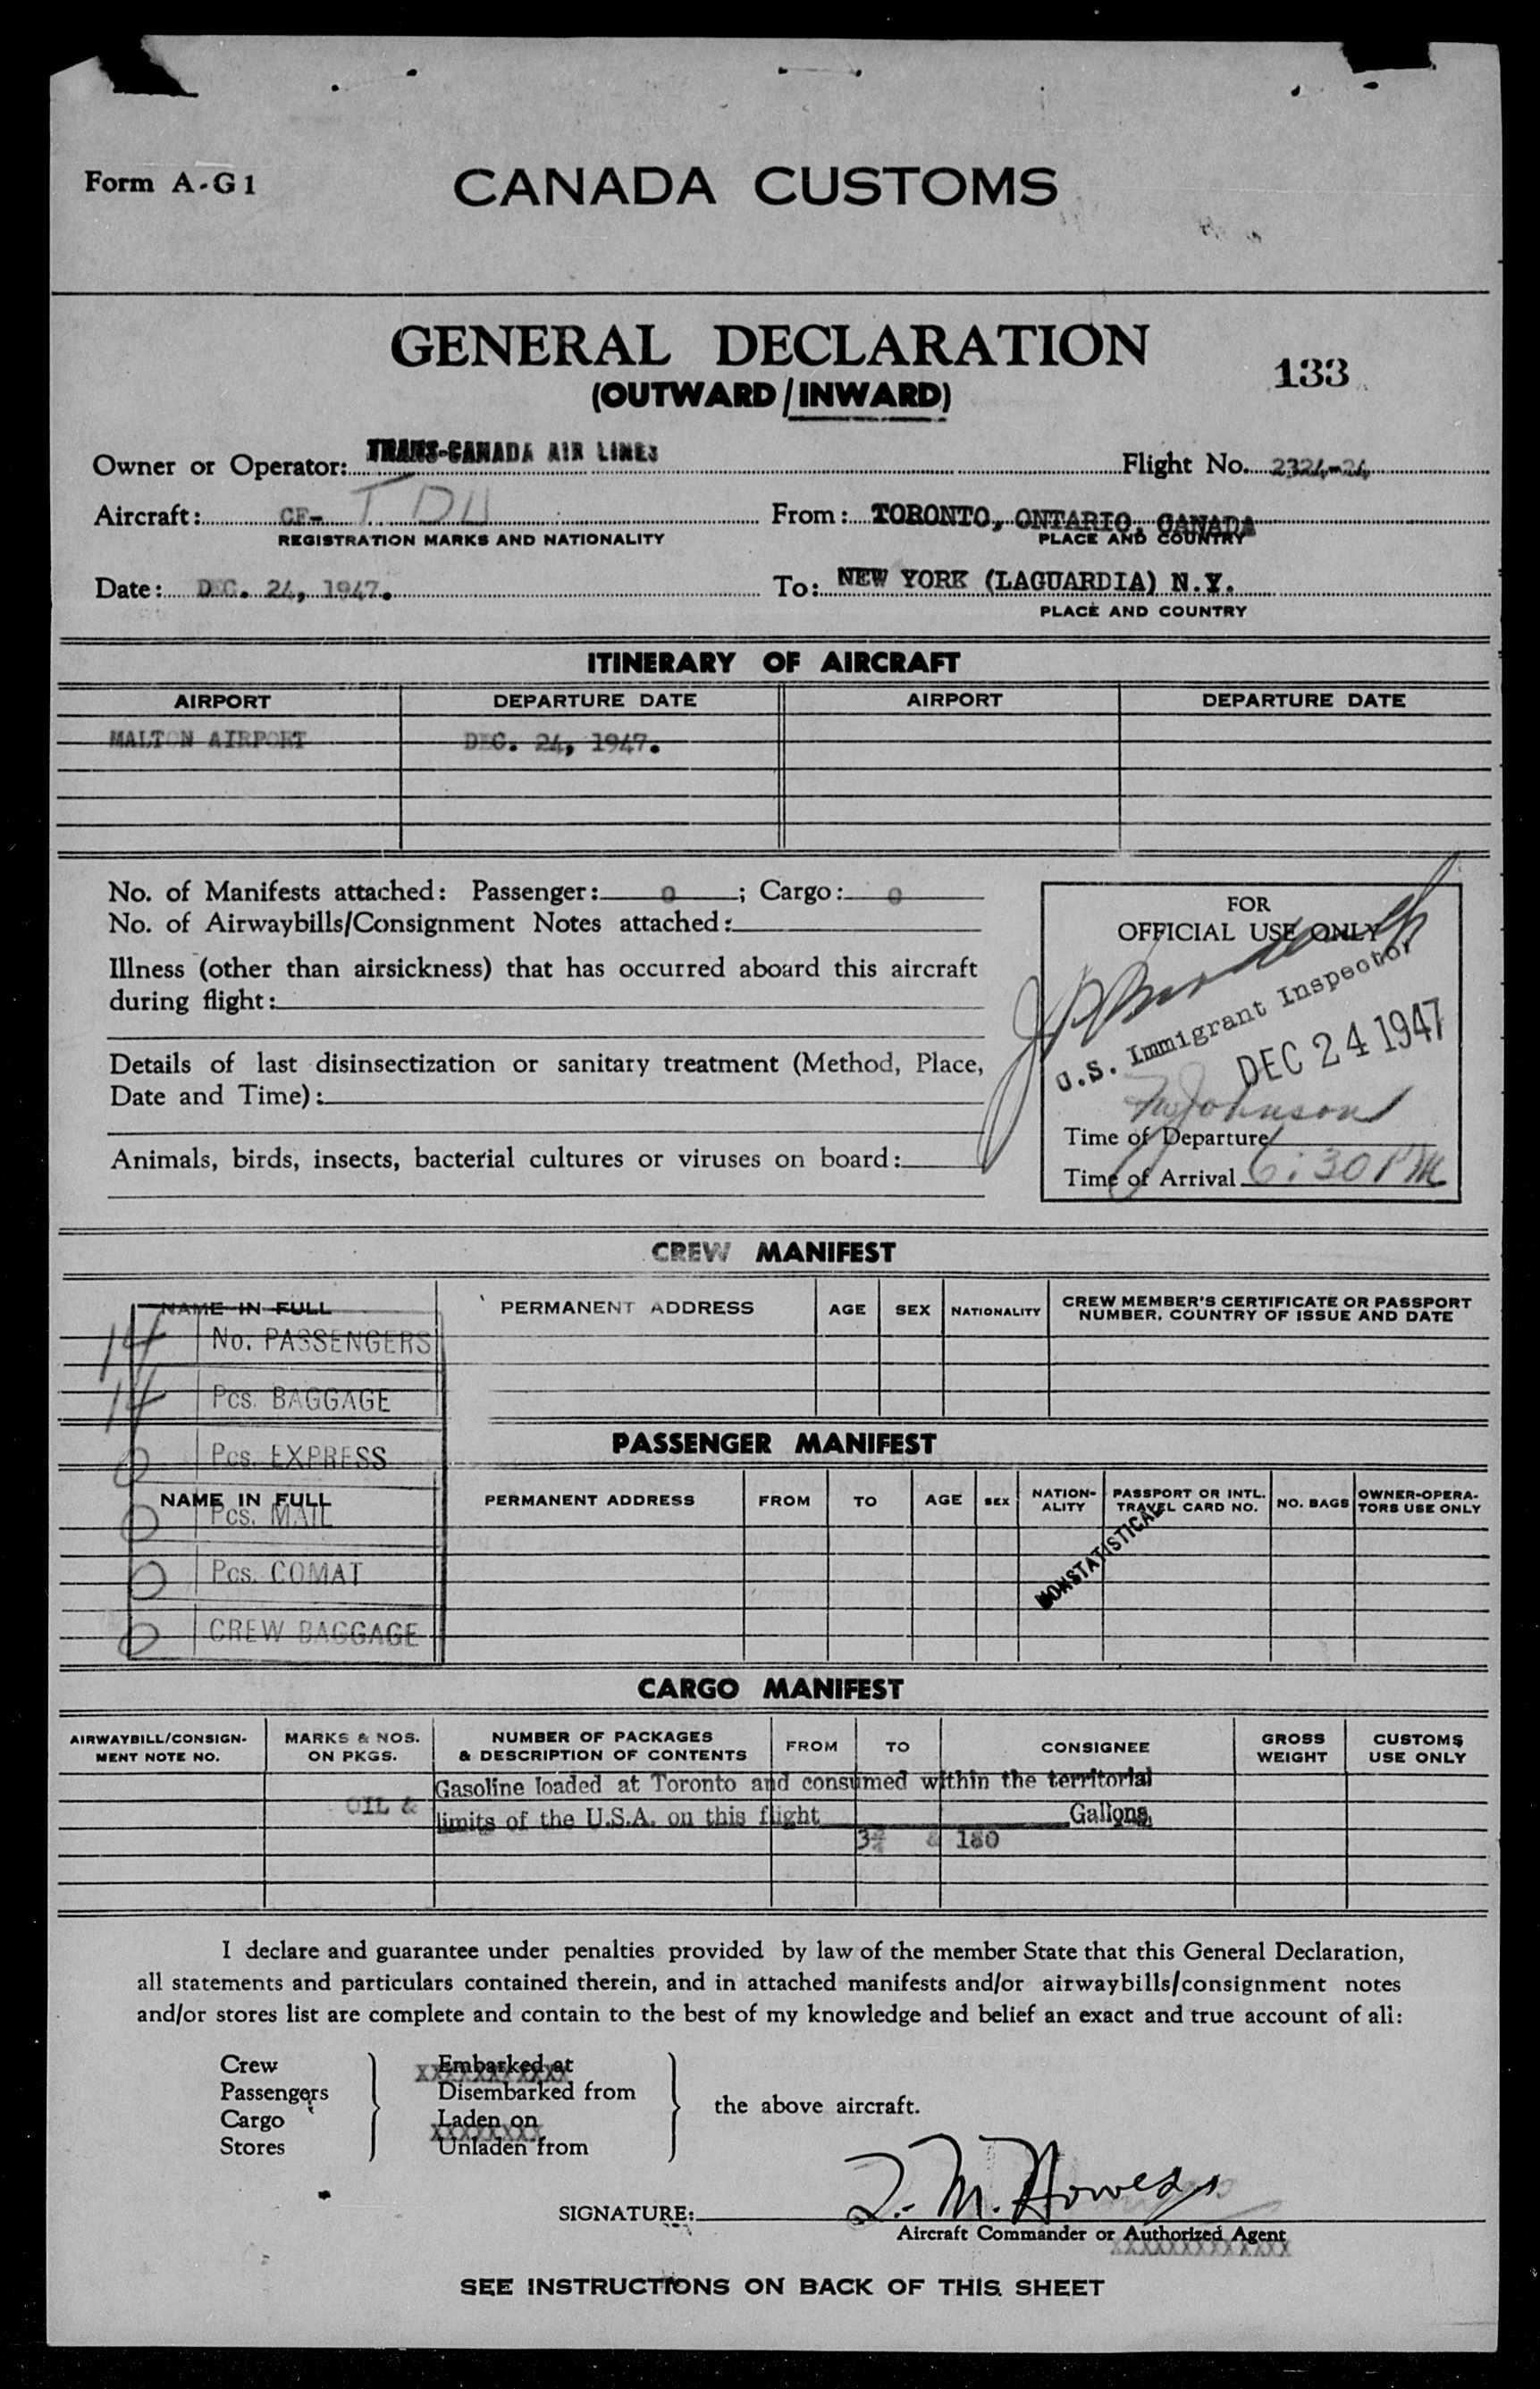 Form A-G1
CANADA CUSTOMS
GENERAL DECLARATION
(OUTWARD/INWARD)
133
Owner or Operator: TRANS-CANADA AIR LINES Flight No. 2324-24
Aircraft: CF- From: TORONTO, ONTARIO, CANADA
REGISTRATION MARKS AND NATIONALITY PLACE AND COUNTRY
Date: DEC. 24, 1947. To: NEW YORK (LAGUARDIA) N.Y.
PLACE AND COUNTRY
ITINERARY OF AIRCRAFT
AIRPORT DEPARTURE DATE AIRPORT DEPARTURE DATE
MALTON AIRPORT DEC. 24, 1947.
No. of Manifests attached: Passenger: 0 ; Cargo: 0
No. of Airwaybills/Consignment Notes attached:
Illness (other than airsickness) that has occurred aboard this aircraft
during flight:
Details of last disinsectization or sanitary treatment (Method, Place,
Date and Time):
Animals, birds, insects, bacterial cultures or viruses on board:
FOR
OFFICIAL USE ONLY
U.S. Immigrant Inspector
DEC 24 1947
Johnson
Time of Departure
Time of Arrival 6:30 PM
CREW MANIFEST
NAME IN FULL PERMANENT ADDRESS AGE SEX NATIONALITY CREW MEMBER'S CERTIFICATE OR PASSPORT
NUMBER, COUNTRY OF ISSUE AND DATE
14 No. PASSENGERS
14 Pcs. BAGGAGE
PASSENGER MANIFEST
0 Pcs. EXPRESS
NAME IN FULL PERMANENT ADDRESS FROM TO AGE SEX NATION-
ALITY PASSPORT OR INTL.
TRAVEL CARD NO. NO. BAGS OWNER-OPERA-
TORS USE ONLY
0 Pcs. MAIL
NONSTATISTICAL
0 Pcs. COMAT
0 CREW BAGGAGE
CARGO MANIFEST
AIRWAYBILL/CONSIGN-
MENT NOTE NO. MARKS & NOS.
ON PKGS. NUMBER OF PACKAGES
& DESCRIPTION OF CONTENTS FROM TO CONSIGNEE GROSS
WEIGHT CUSTOMS
USE ONLY
Gasoline loaded at Toronto and consumed within the territorial
OIL & limits of the U.S.A. on this flight Gallons,
& 180
I declare and guarantee under penalties provided by law of the member State that this General Declaration,
all statements and particulars contained therein, and in attached manifests and/or airwaybills/consignment notes
and/or stores list are complete and contain to the best of my knowledge and belief an exact and true account of all:
Crew Embarked at
Passengers Disembarked from
the above aircraft.
Cargo Laden on
Stores Unladen from
SIGNATURE:
Aircraft Commander or Authorized Agent
SEE INSTRUCTIONS ON BACK OF THIS SHEET